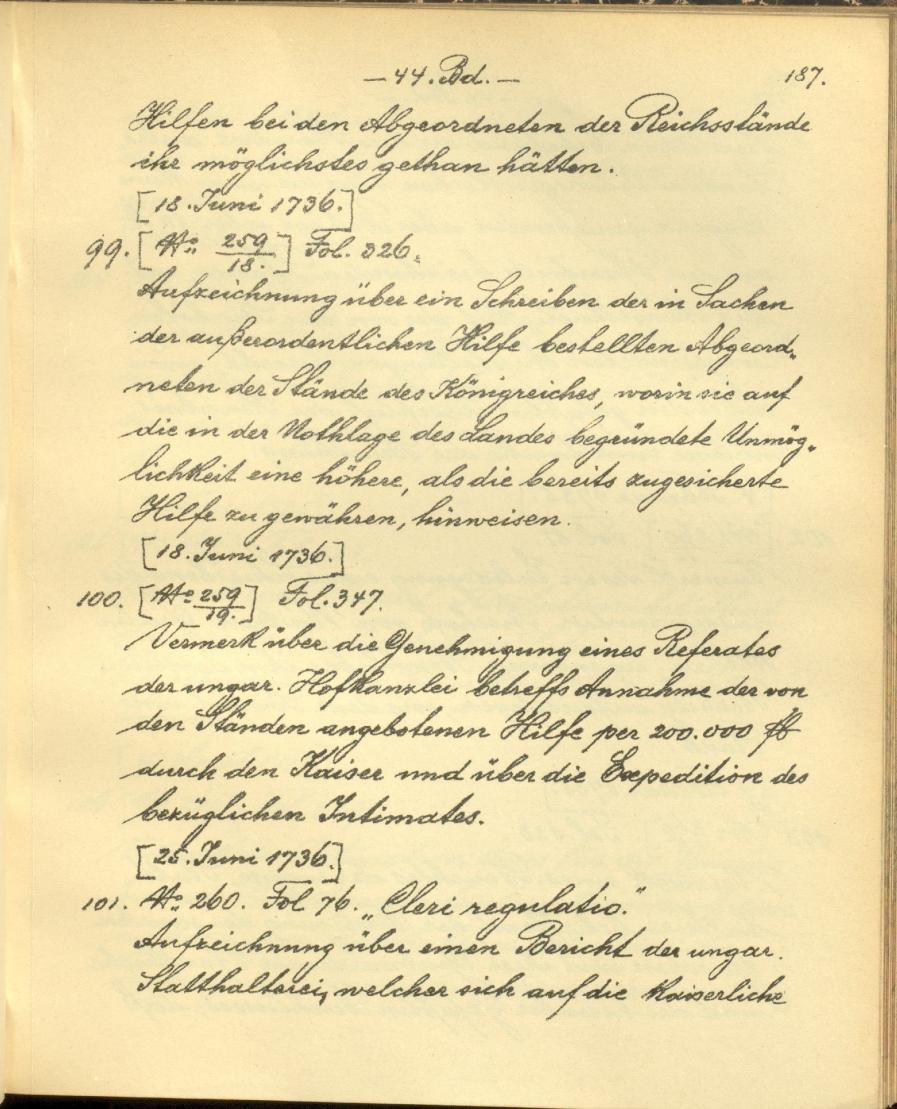 — 44. Bd. —
187.
Hilfen bei den Abgeordneten der Reichsstände
ihr möglichstes gethan hätten.
[18. Juni 1736.]
99. [No 259/18.] Fol. 326.
Aufzeichnung über ein Schreiben der in Sachen
der außerordentlichen Hilfe bestellten Abgeord„
neten der Stände des Königreiches, worin sie auf
die in der Nothlage des Landes begründete Unmög„
lichkeit eine höhere, als die bereits zugesicherte
Hilfe zu gewähren, hinweisen.
[18. Juni 1736.]
100. [No 259/19.] Fol. 347.
Vermerk über die Genehmigung eines Referates
der ungar. Hofkanzlei betreffs Annahme der von
den Ständen angebotenen Hilfe per 200.000
durch den Kaiser und über die Expedition des
bezüglichen Intimates.
[25. Juni 1736.]
101. No 260. Fol 76. „Cleri regulatio."
Aufzeichnung über einen Bericht der ungar.
Statthalterei, welcher sich auf die Kaiserliche